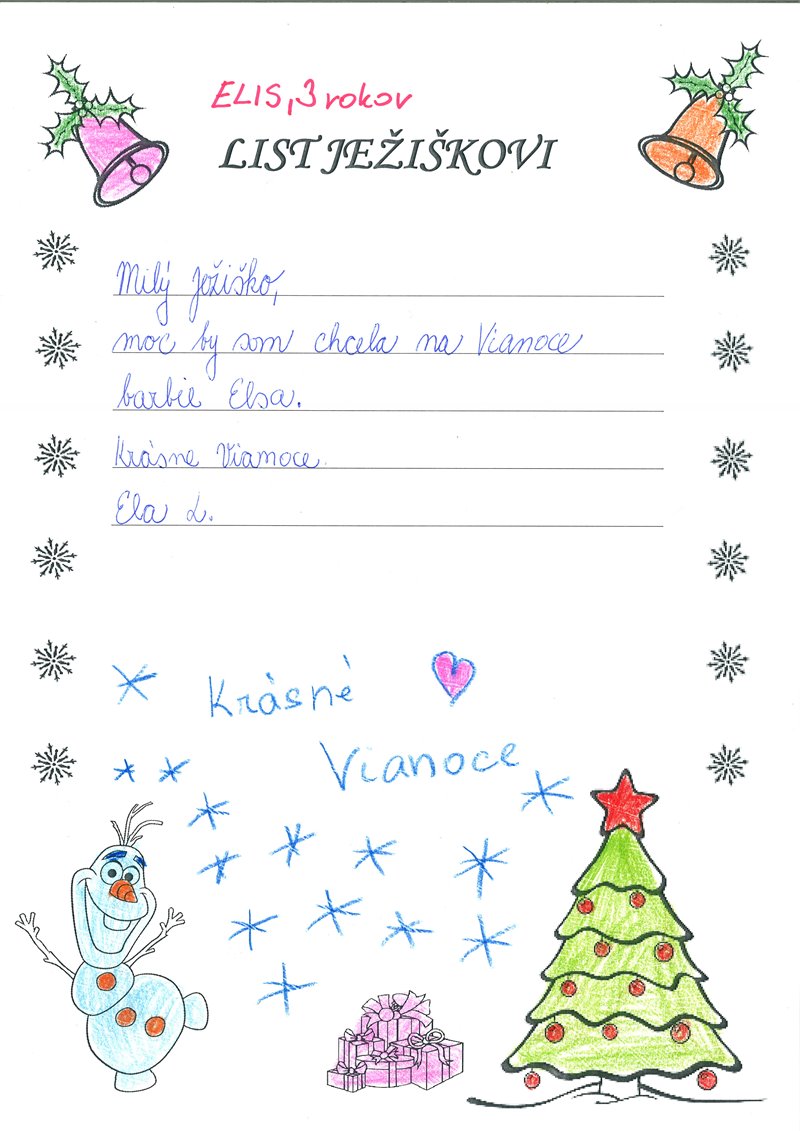 ELIS, 3 rokov
LIST JEŽIŠKOVI
Milý Ježiško,
moc by som chcela na Vianoce
barbie Elsa.
Krásne Vianoce.
Ela L.
Krásné
Vianoce